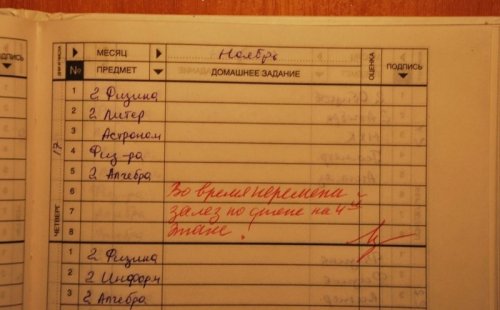 МЕСЯЦ Ноябрь ОЦЕНКА ПОДПИСЬ
№ ПРЕДМЕТ ДОМАШНЕЕ ЗАДАНИЕ
1 2. Физика
2 2. Литер
3 Астроном
4 Физ-ра
5 2. Алгебра
6 Во время перемены
7 залез по стене на 4ый
8 этаж!
17
ЧЕТВЕРГ
1 2. Физика
2 2. Информ
3 2. Алгебра